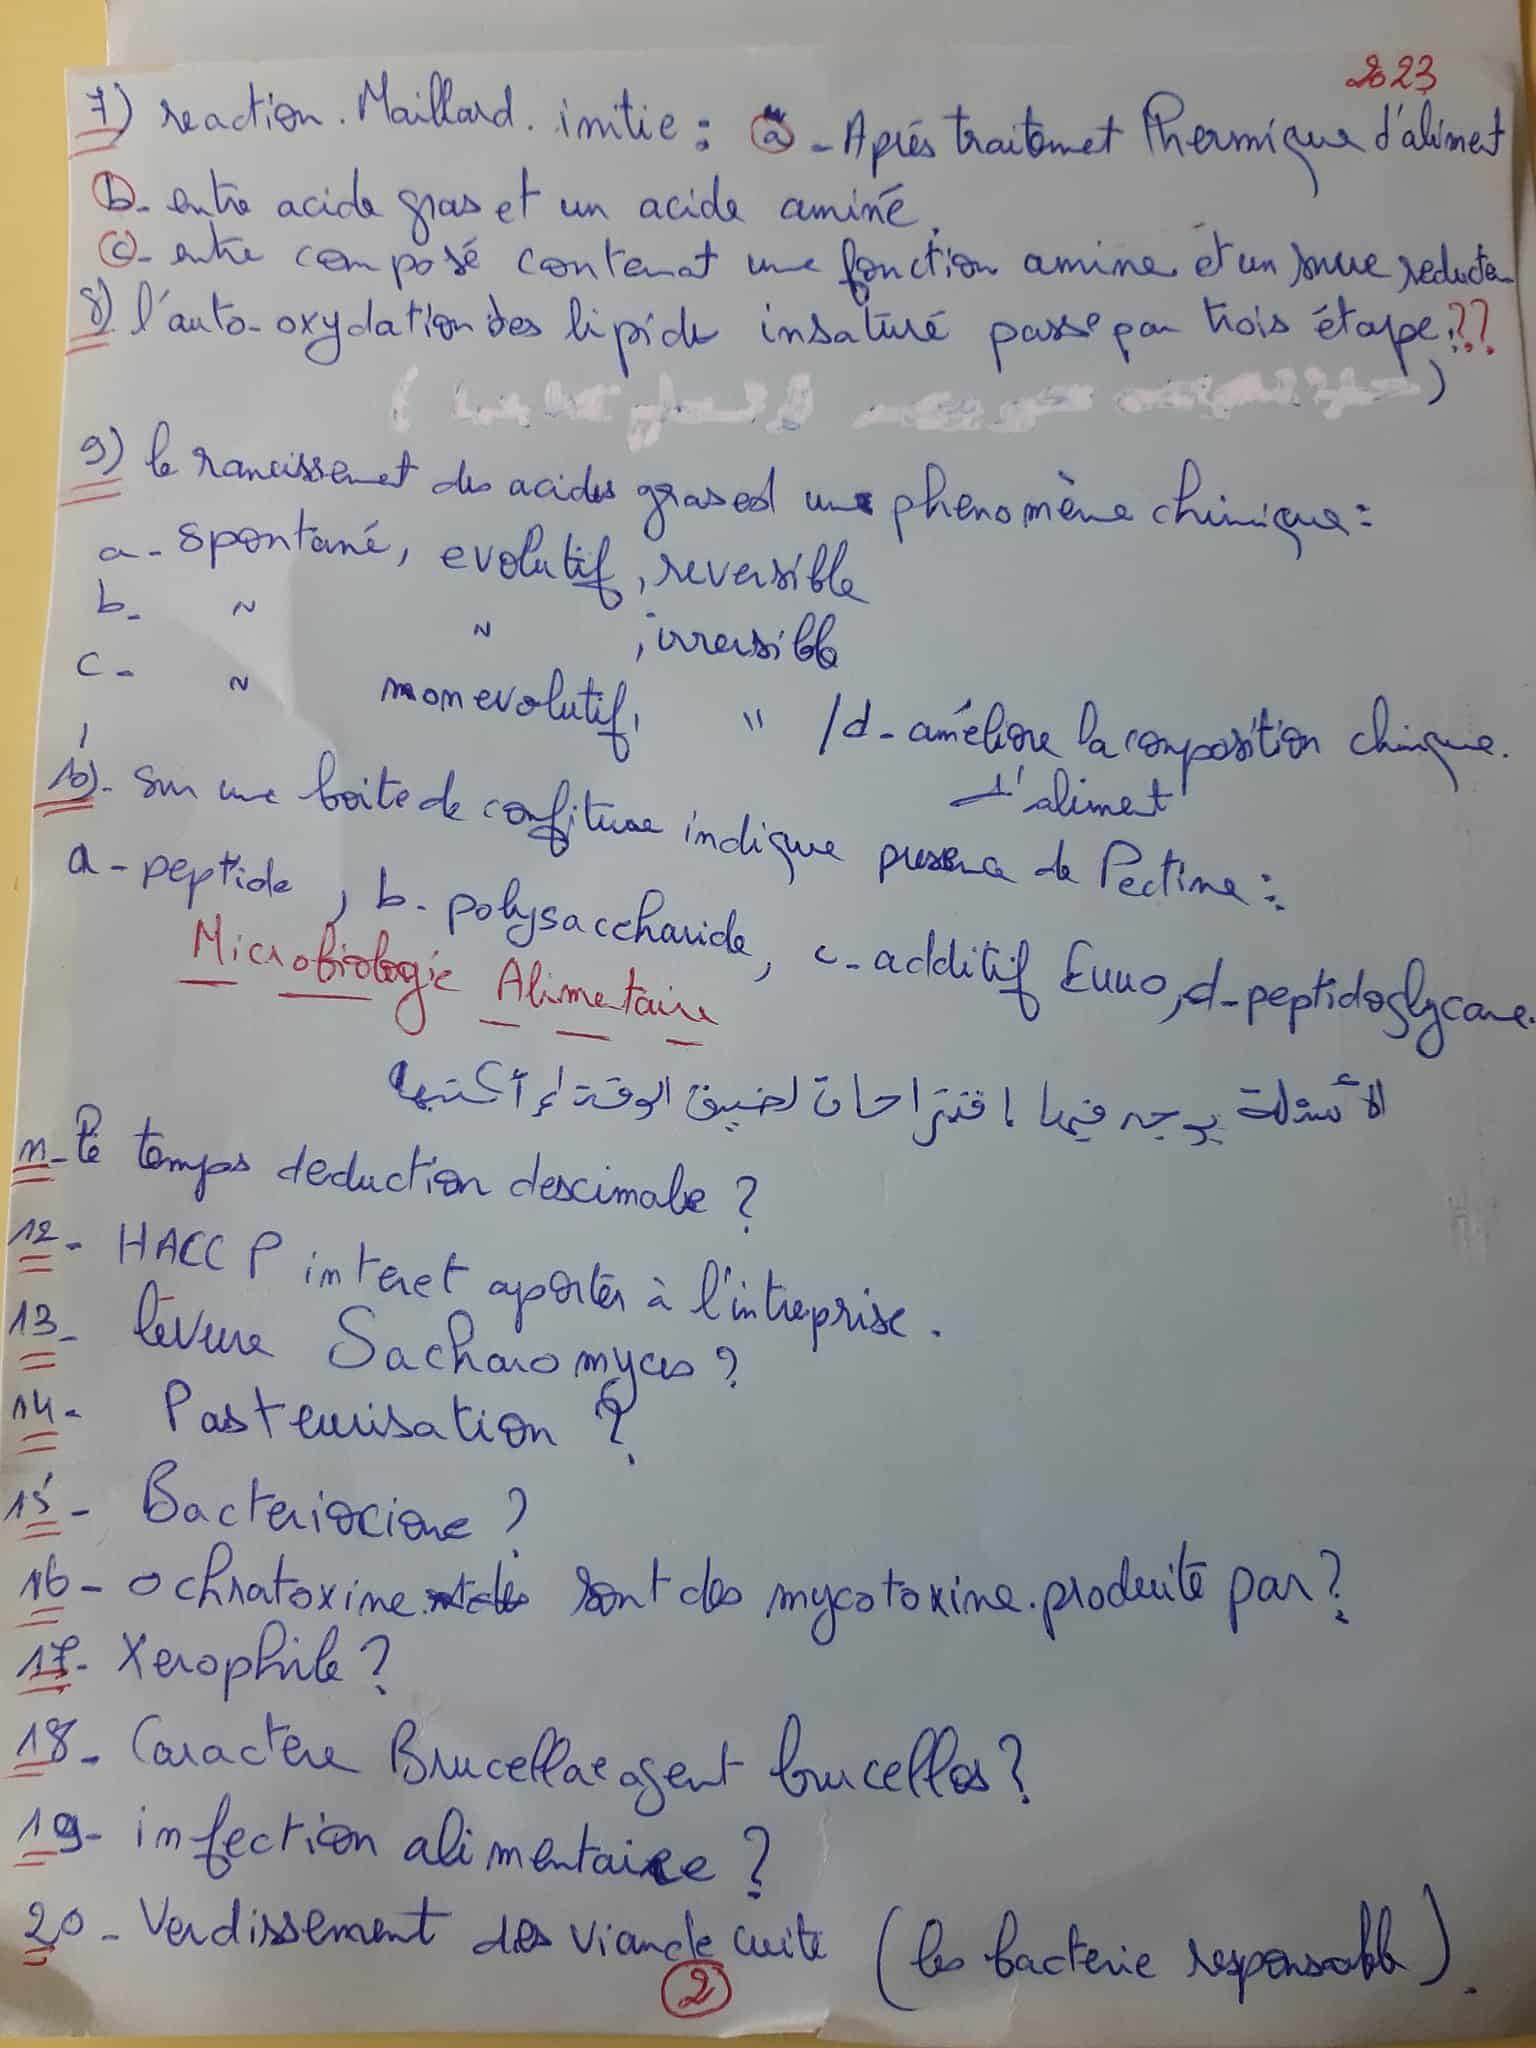 2023
7) reaction. Maillard. initie : a - Aprés traitemet thermique d'alimet
b - entre acide gras et un acide aminé.
c - entre composé contenat une fonction amine et un sucre reducteu
8) l'auto-oxydation des lipide insaturé passe par trois étape ??
( )
9) le rancissemet des acides gras est une phenomène chimique :
a - spontané, evolutif, reversible
b - ~ ~ , irrersible
c - ~ non evolutif, " / d - améliore la composition chimique.
d'aliment
10) - Sur une boite de confiture indique presence de Pectine :
a - peptide, b - polysaccharide, c - additif E440, d - peptidoglycane.
Microbiologie Alimetaire
الأسئلة يوجد فيها اقتراحات لضيق الوقت لم أكتبها
11 - le temps deduction descimale ?
12 - HACCP interet aportés à l'intreprise.
13 - levure Sacharomyces ?
14 - Pasteurisation ?
15 - Bacteriocione ?
16 - Ochratoxine sont des mycotoxine produite par ?
17 - Xerophile ?
18 - Caractère Brucellae agent brucellos ?
19 - infection alimentaire ?
20 - Verdissement des viande cuite (les bacterie responsable).
2